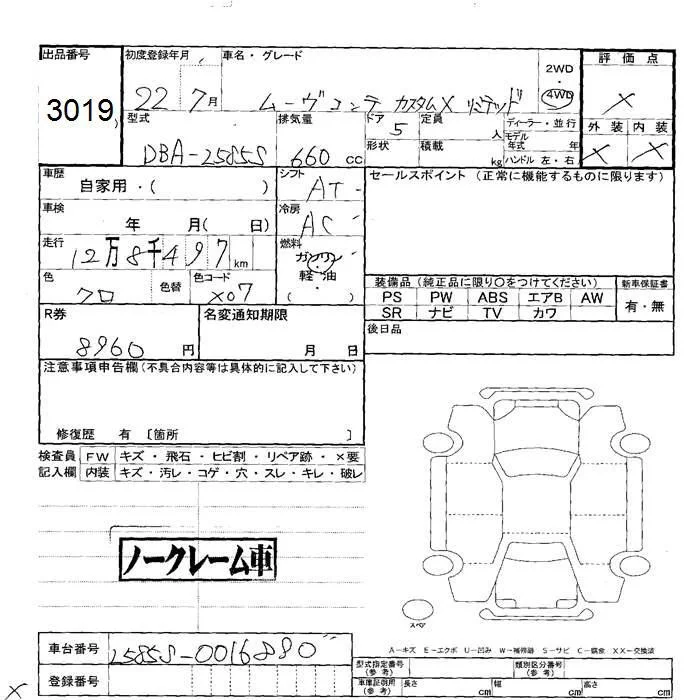 出品番号 初度登録年月 車名・グレード 評価点
3019 22 7月 ムーヴコンテ カスタムX リミテッド 2WD・4WD X
型式 排気量 ドア 定員 ディーラー・並行 外装 内装
DBA-L585S 660cc 5 人 モデル年式 年 X X
形状 積載 kg ハンドル 左・右
車歴 シフト セールスポイント (正常に機能するものに限ります)
自家用・( ) AT
車検 冷房
年 月( 日) AC
走行 燃料
12万8千497km ガソリン
軽・油
( )
色 色替 色コード 装備品 (純正品に限り〇をつけてください) 新車保証書
クロ X07 PS PW ABS エアB AW 有・無
R券 名変通知期限 SR ナビ TV カワ
8960円 月 日 後日品
注意事項申告欄 (不具合内容等は具体的に記入して下さい)
修復歴 有 〔箇所 〕
検査員 FW キズ・飛石・ヒビ割・リペア跡・×要
記入欄 内装 キズ・汚レ・コゲ・穴・スレ・キレ・破レ
ノークレーム車
スペア
A－キズ E－エクボ U－凹み W－補修跡 S－サビ C－腐食 XX－交換済
車台番号 L585S-0016880
型式指定番号(参考) 類別区分番号(参考)
登録番号 車庫証明用(参考) 長さ cm 幅 cm 高さ cm
X